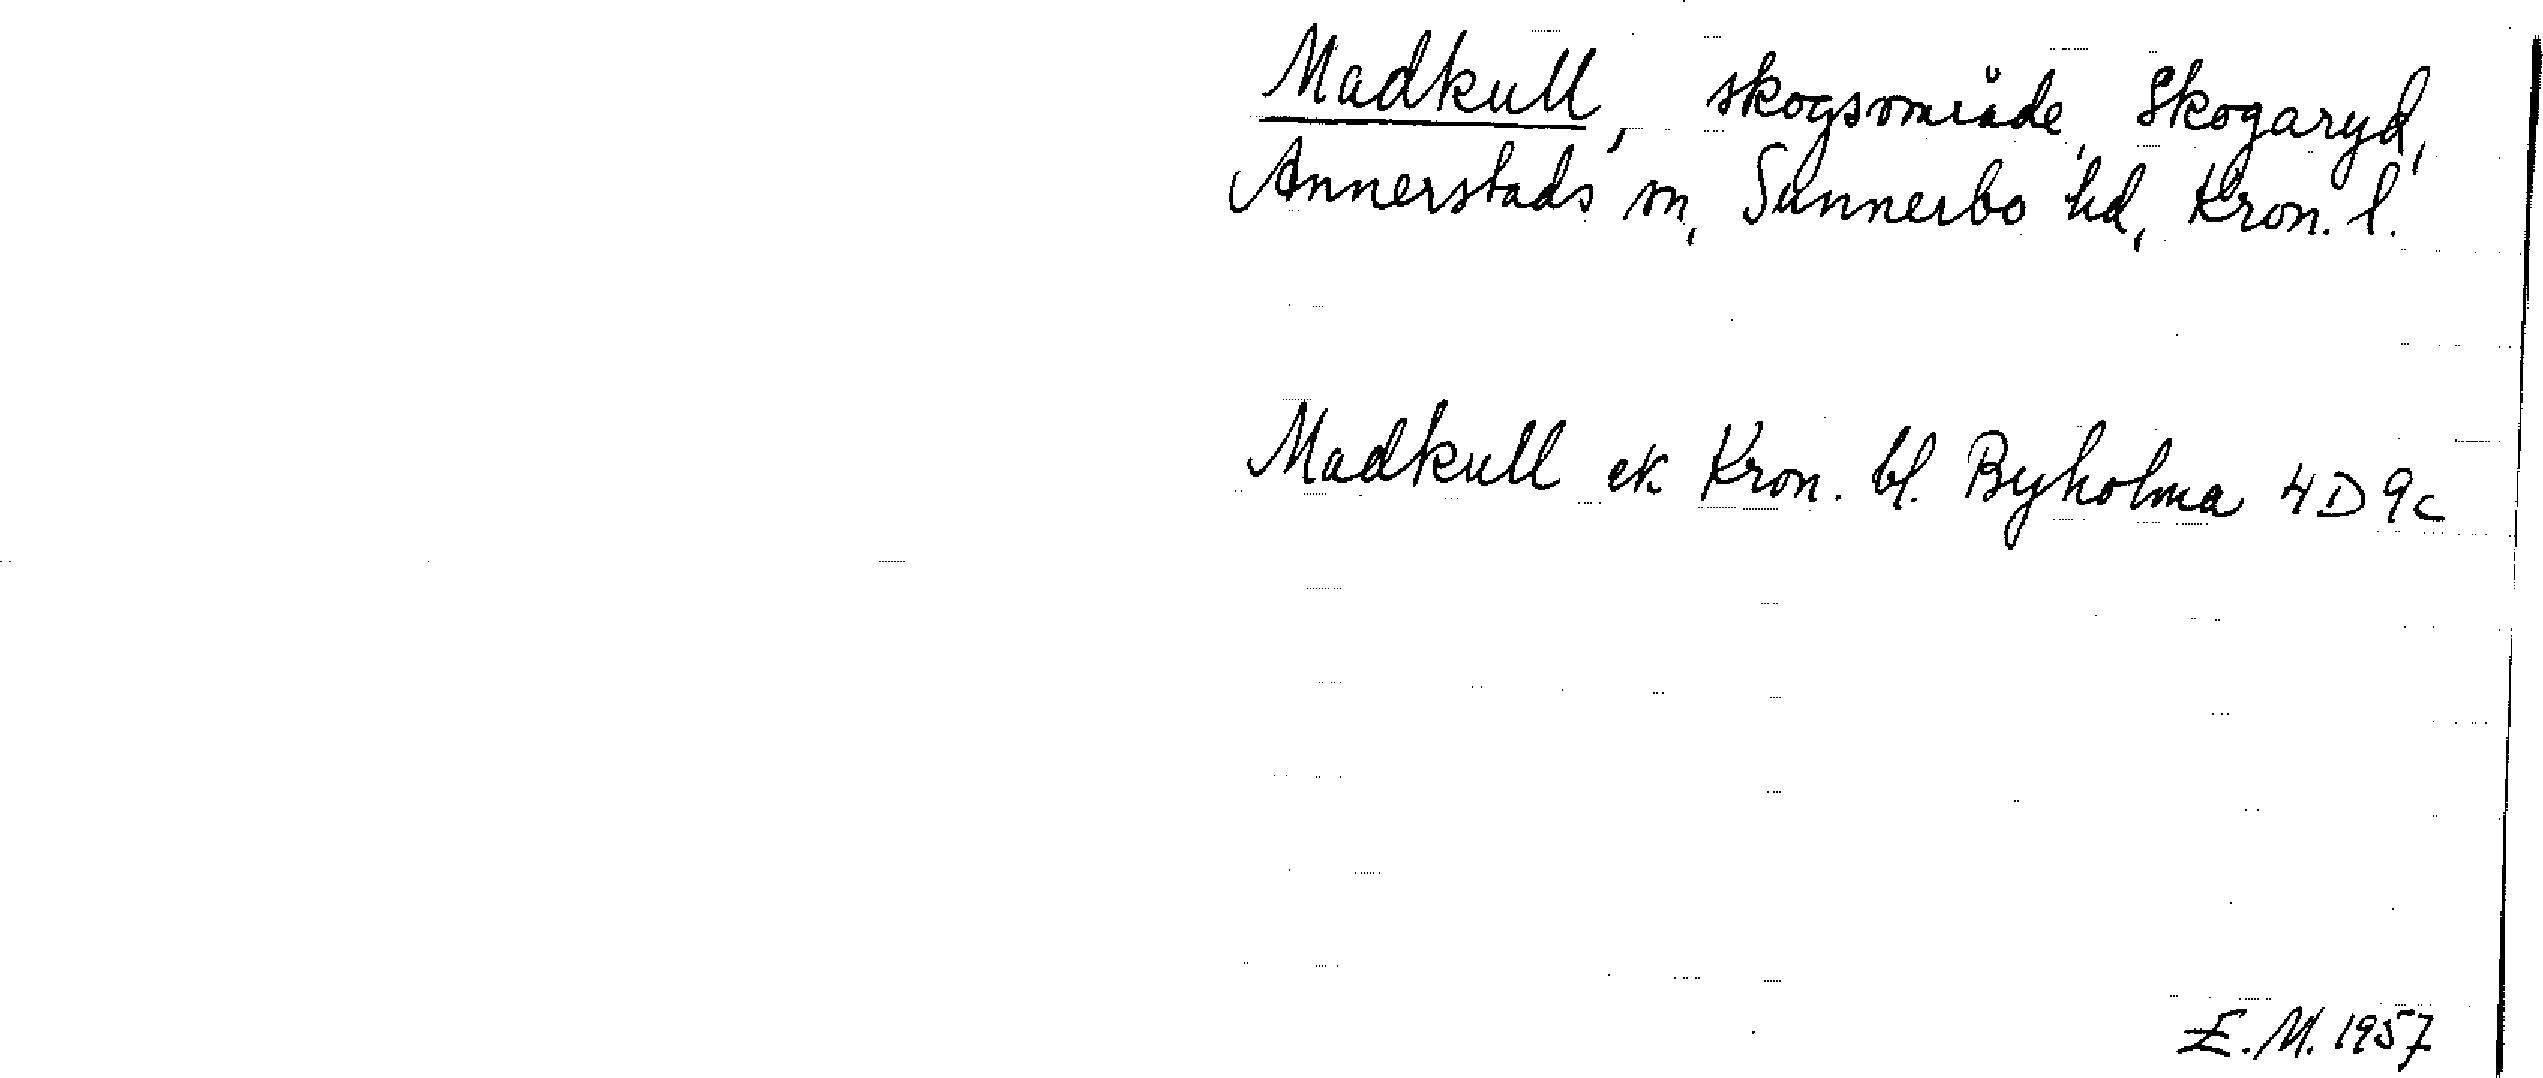 Madkull, skogsområde, Skogaryd,
Annerstads sn, Sunnerbo hd, Kron. l.
Madkull ek Kron. bl. Byholma 4D 9c
E.M. 1957